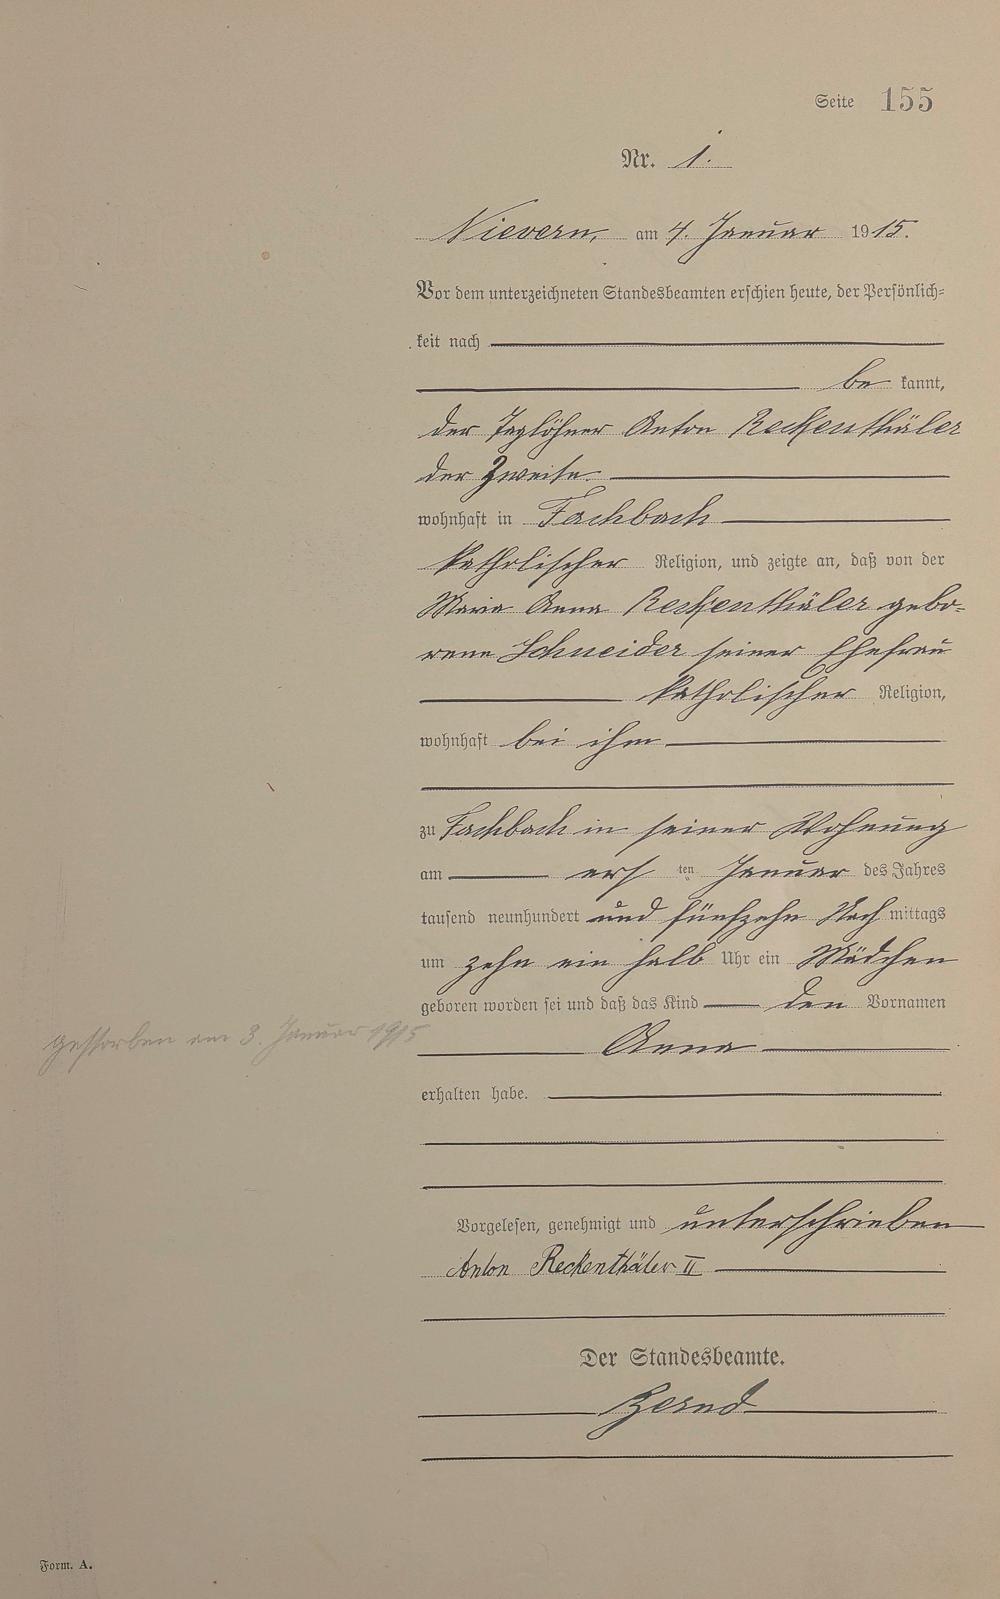 Seite 155
Nr. 1.
Nievern, am 4. Januar 1915.
Vor dem unterzeichneten Standesbeamten erschien heute, der Persönlich=
keit nach
be kannt,
der Taglöhner Anton Reckenthäler
der Zweite.
wohnhaft in Fachbach
katholischer Religion, und zeigte an, daß von der
Maria Anna Reckenthäler gebo-
rene Schneider seiner Ehefrau
katholischer Religion,
wohnhaft bei ihm
zu Fachbach in seiner Wohnung
am ersten Januar des Jahres
tausend neunhundert und fünfzehn Nach mittags
um zehn ein halb Uhr ein Mädchen
geboren worden sei und daß das Kind den Vornamen
gestorben am 3. Januar 1915
Anna
erhalten habe.
Vorgelesen, genehmigt und unterschrieben
Anton Reckenthäler II
Der Standesbeamte.
Form. A.